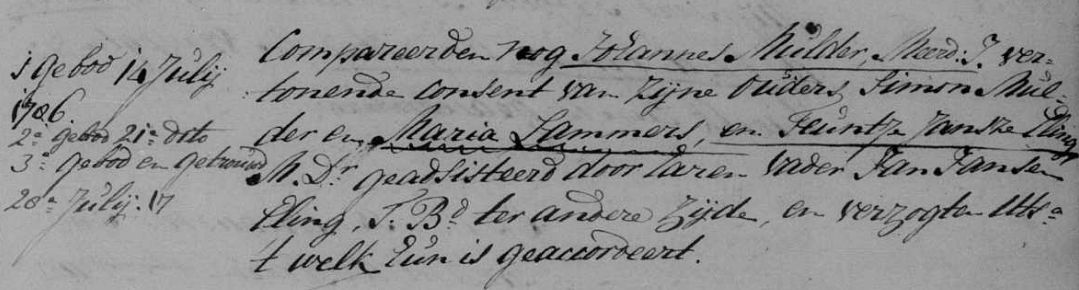 1 gebod 14 Julij
1786.
2e gebod 21e dito
3e gebod en getrouwd
28e Julij. 17
Compareerden nog Johannes Mulder, Meerd: J. ver=
tonende consent van zijne Ouders, Simon Mul=
der en Maria Lammers, en Teuntje Janske Eling
M. Dr. geadsisteerd door haren vader Jan Jansen
Eling, T. Bd. ter andere zijde, en verzogten Utsa
't welk Eun is geaccordeert.